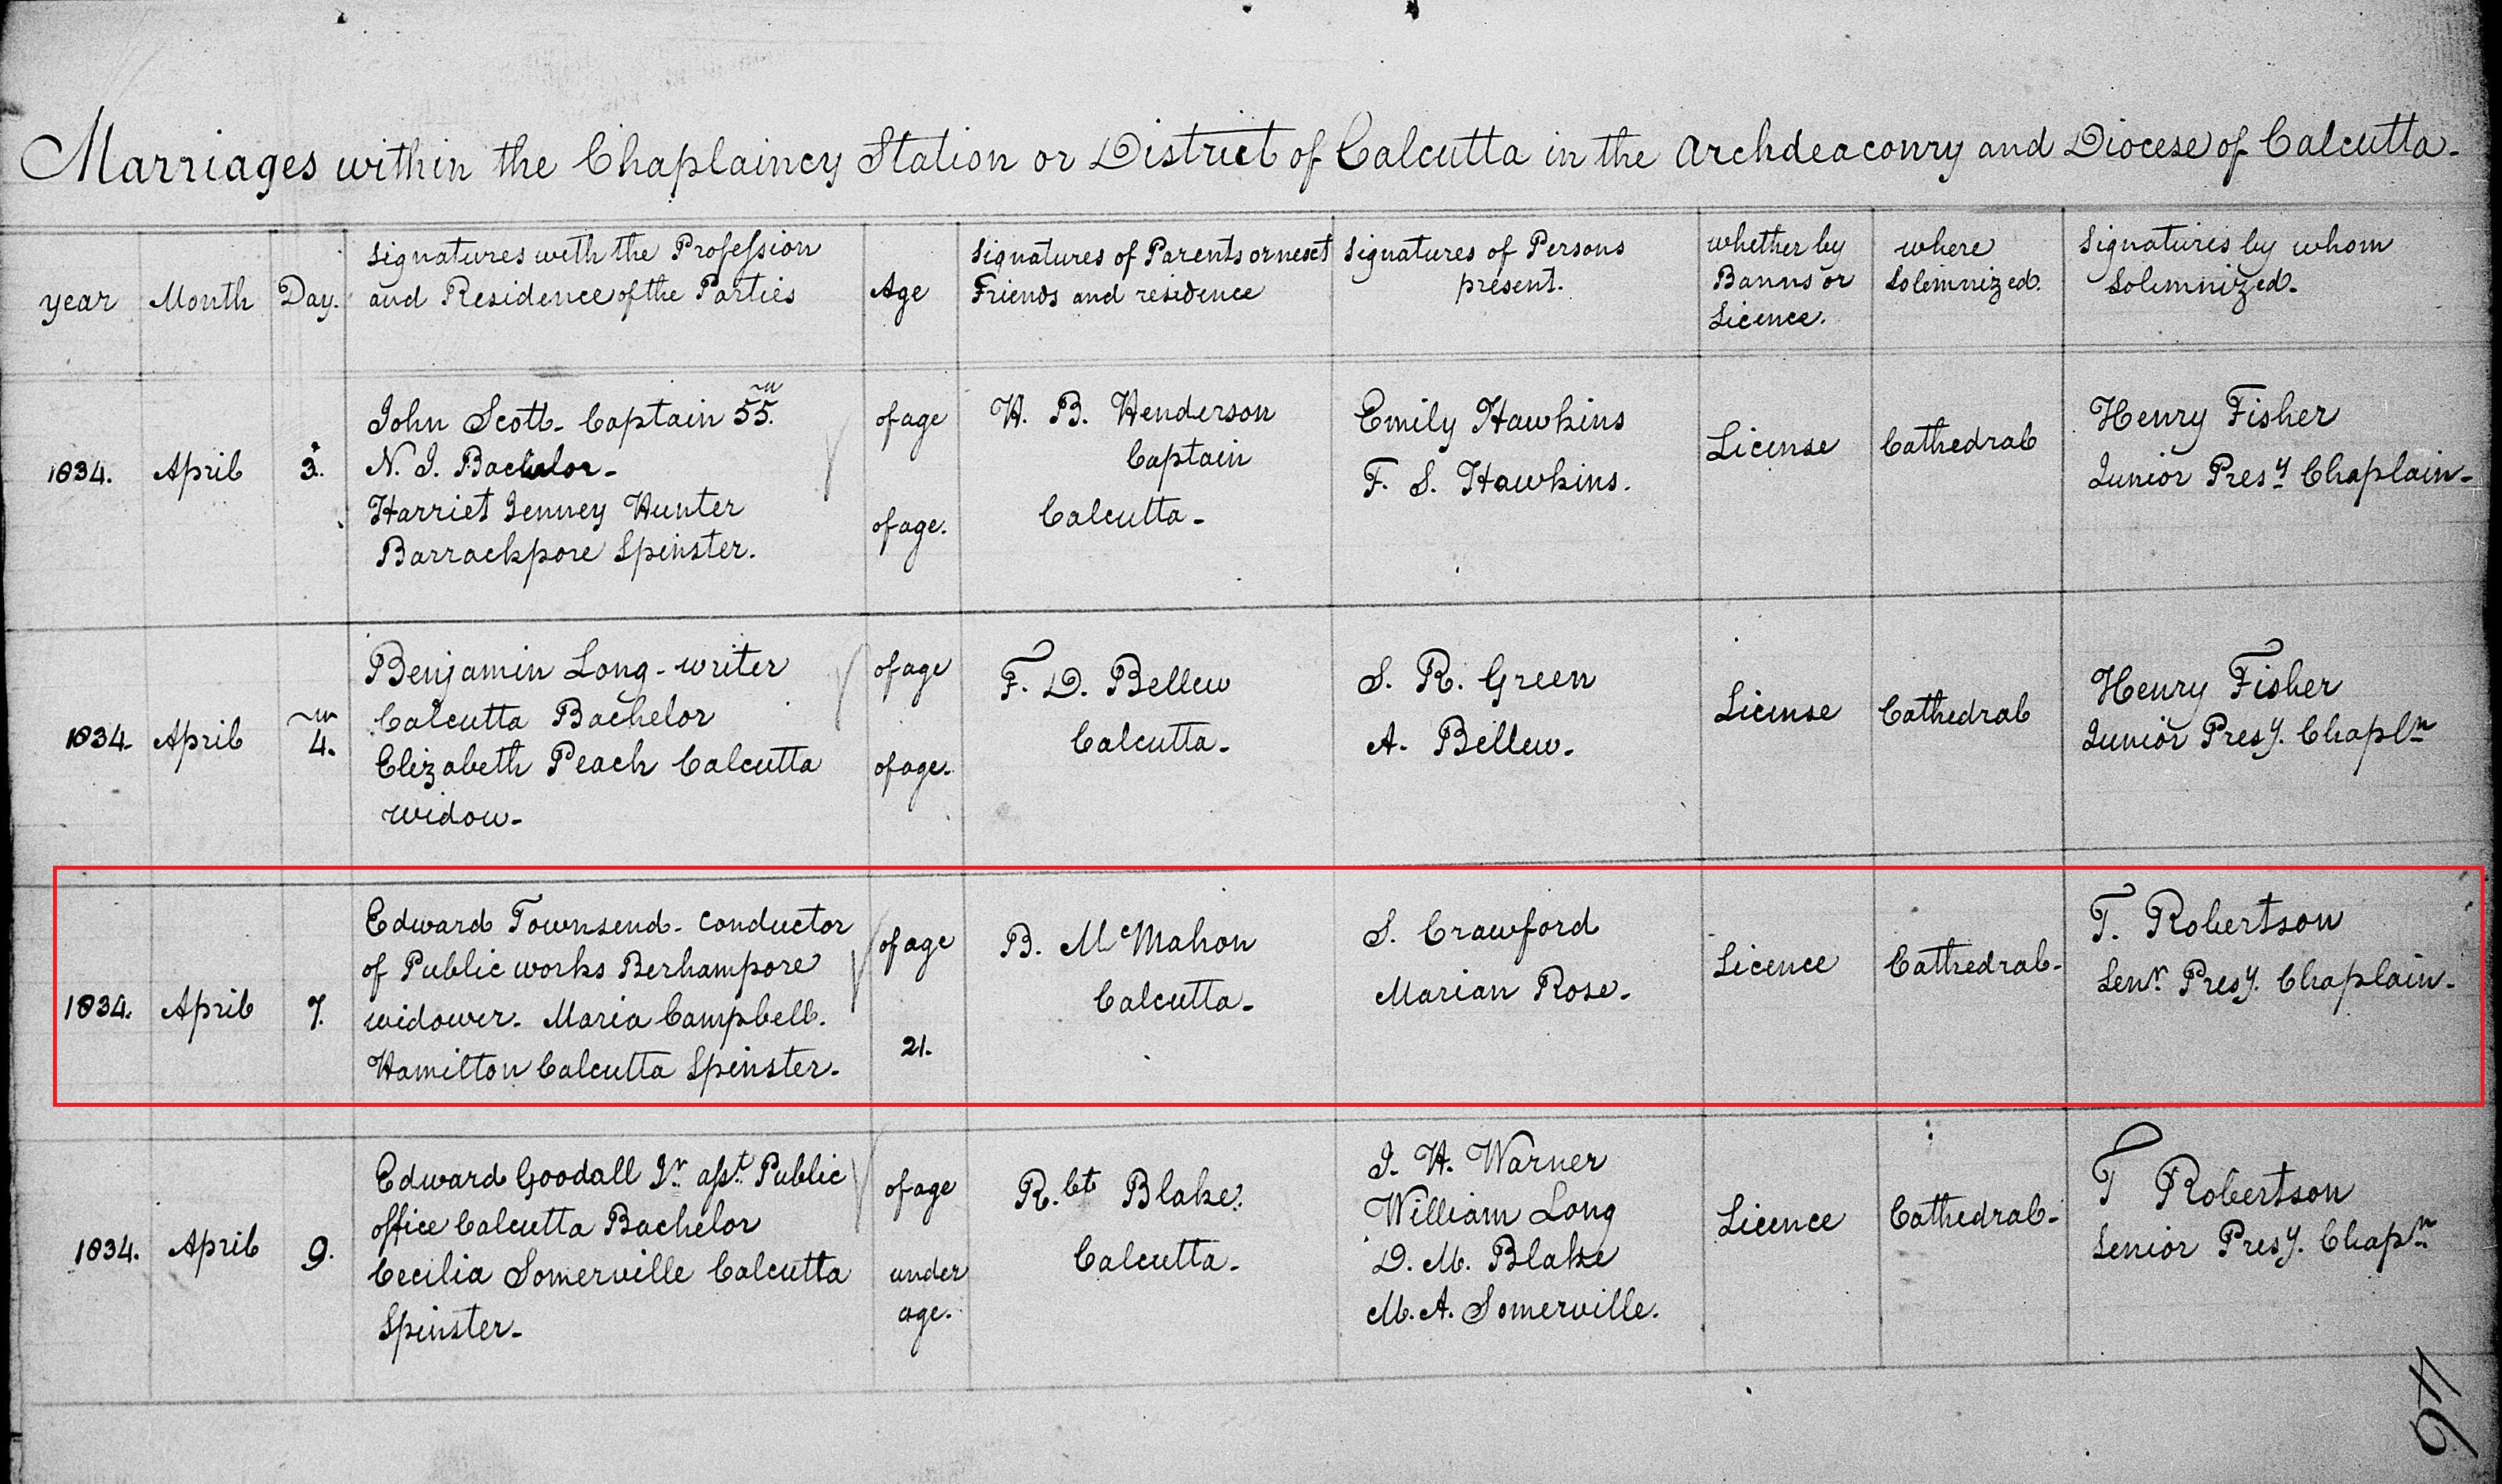 Marriages within the Chaplaincy Station or District of Calcutta in the Archdeaconry and Diocese of Calcutta.
year
Month
Day.
Signatures with the Profession
and Residence of the Parties
Age
Signatures of Parents or next
Friends and residence
Signatures of Persons
present.
whether by
Banns or
Licence.
where
Solemnized.
Signatures by whom
Solemnized.
1834.
April
3.
John Scott - Captain 55.th
N. I. Bachelor -
Harriet Jenney Hunter
Barrackpore Spinster.
of age
of age.
W. B. Henderson
Captain
Calcutta -
Emily Hawkins
F. S. Hawkins.
License
Cathedral
Henry Fisher
Junior Presy Chaplain -
1834.
April
4.th
Benjamin Long - writer
Calcutta Bachelor
Elizabeth Peach Calcutta
widow -
of age
of age.
F. D. Bellew
Calcutta -
S. R. Green
A. Bellew -
License
Cathedral
Henry Fisher
Junior Presy. Chapln
1834.
April
7.
Edward Townsend - Conductor
of Public works Berhampore
widower - Maria Campbell.
Hamilton Calcutta Spinster -
of age
21.
B. McMahon
Calcutta -
S. Crawford
Marian Rose -
Licence
Cathedral -
T. Robertson
Senr. Presy. Chaplain -
1834.
April
9.
Edward Goodall Jr. asst. Public
office Calcutta Bachelor
Cecilia Somerville Calcutta
Spinster -
of age
under
age.
R.bt Blake.
Calcutta -
J. H. Warner
William Long
D. M. Blake
M. A. Somerville.
Licence
Cathedral -
T Robertson
Senior Presy. Chapn